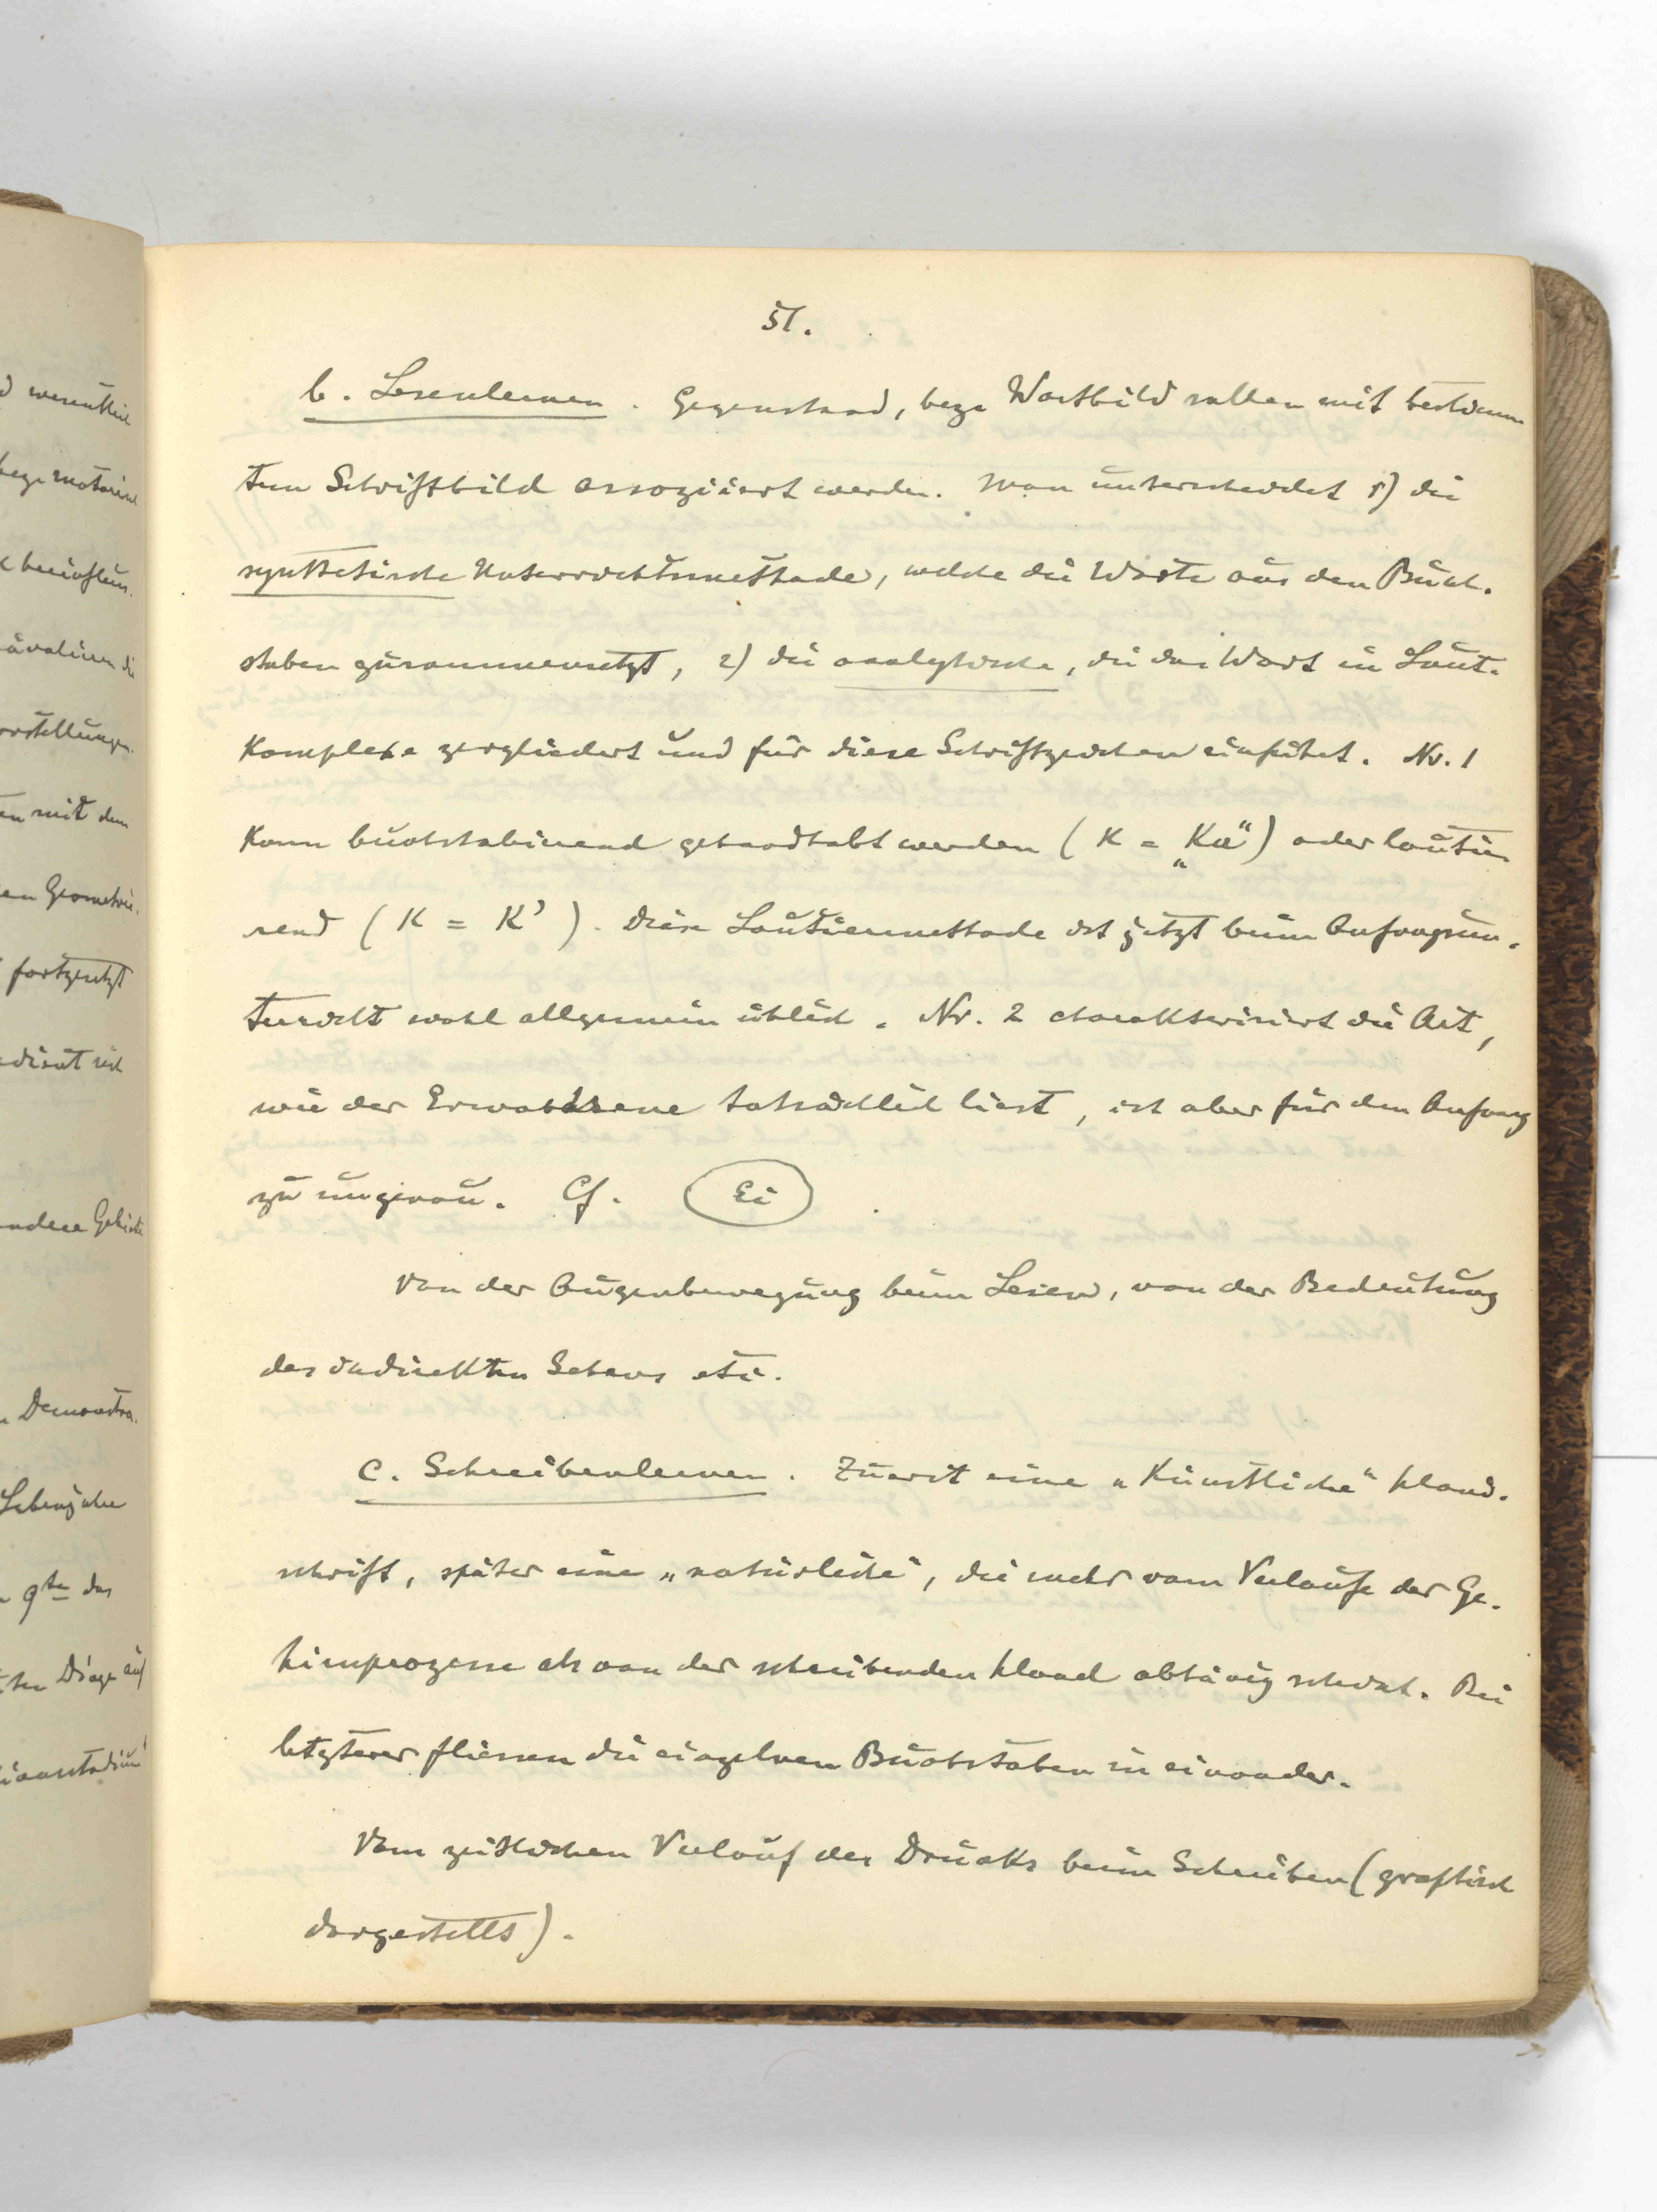 51.
b. Lesenlernen. Gegenstand, bezw Wortbild sollen mit bestimm-
tem Schriftbild assoziiert werden. Man unterscheidet 1) die
synthetische Unterrichtsmethode, welche die Worte aus den Buch-
staben zusammensetzt, 2) die analytische, die das Wort in Laut-
komplexe zergliedert und für diese Schriftzeichen einführt. Nr. 1
kann buchstabierend gehandhabt werden (K = „Ka“) oder lautie-
rend (K = K’). Diese Lautiermethode ist jetzt beim Anfangsun-
terricht wohl allgemein üblich. Nr. 2 charakterisiert die Art,
wie der Erwachsene tatsächlich liest, ist aber für den Anfang
zu ungenau. Cf. Ei.
Von der Augenbewegung beim Lesen, von der Bedeutung
des indirekten Sehens etc.
c. Schreibenlernen. Zuerst eine „künstliche“ Hand-
schrift, später eine „natürliche“, die mehr vom Verlaufe der Ge-
hirnprozesse als von der schreibenden Hand abhängig scheint. Bei
letzterer fliessen die einzelnen Buchstaben in einander.
Vom zeitlichen Verlauf des Drucks beim Schreiben (graphisch
dargestellt).
d wesentlich
bezw motorisch
beeinflus-
die
orstellungen.
en mit dem
en Geometrie.
fortgesetzt
dient sich
andere Gebiete
n Demonstra-
Lebensjahre
9ten das
Dinge auf